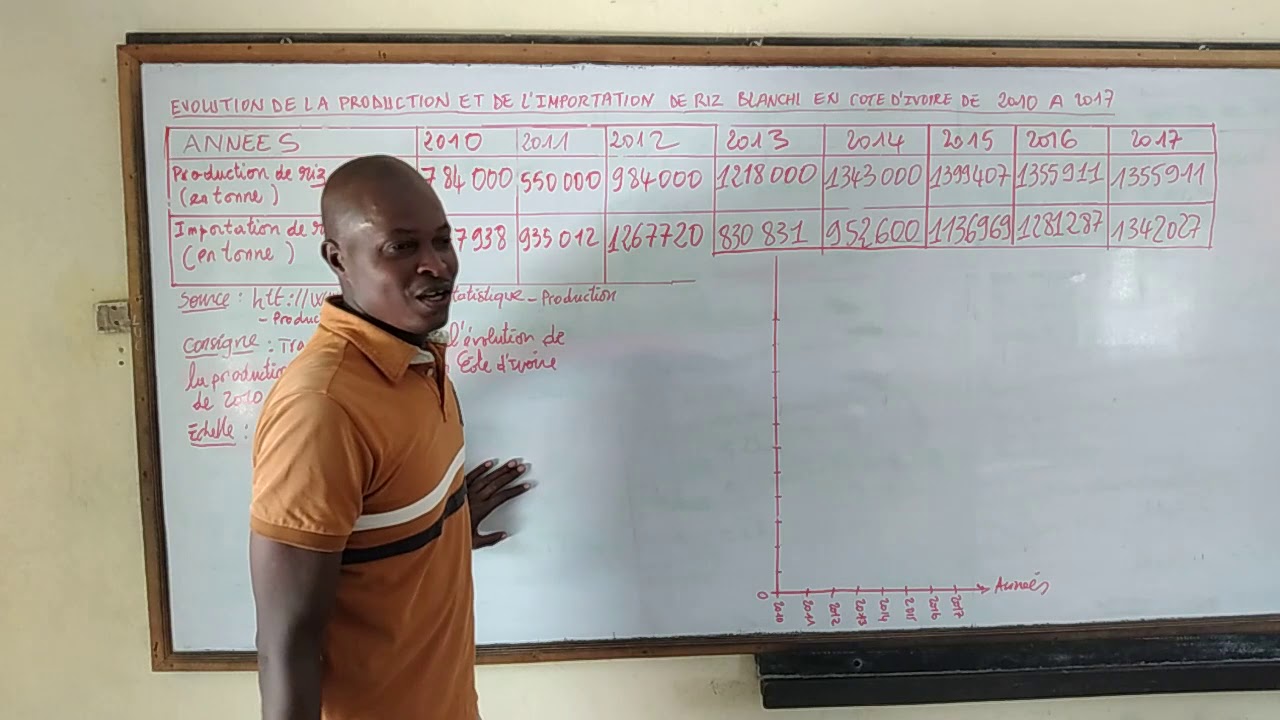 EVOLUTION DE LA PRODUCTION ET DE L'IMPORTATION DE RIZ BLANCHI EN COTE D'IVOIRE DE 2010 A 2017
ANNEES 2010 2011 2012 2013 2014 2015 2016 2017
Production de riz 784 000 550 000 984000 1218 000 1343 000 1399407 1355911 1355911
(en tonne)
Importation de 7 938 935 012 1267720 830 831 952600 1136969 1281287 1342027
(en tonne)
Source : htt:// tatistique - Production
- Produc
Consigne : l'évolution de
la production Côte d'Ivoire
de 2010
Echelle :
0 2010 2011 2012 2013 2014 2015 2016 2017 Années